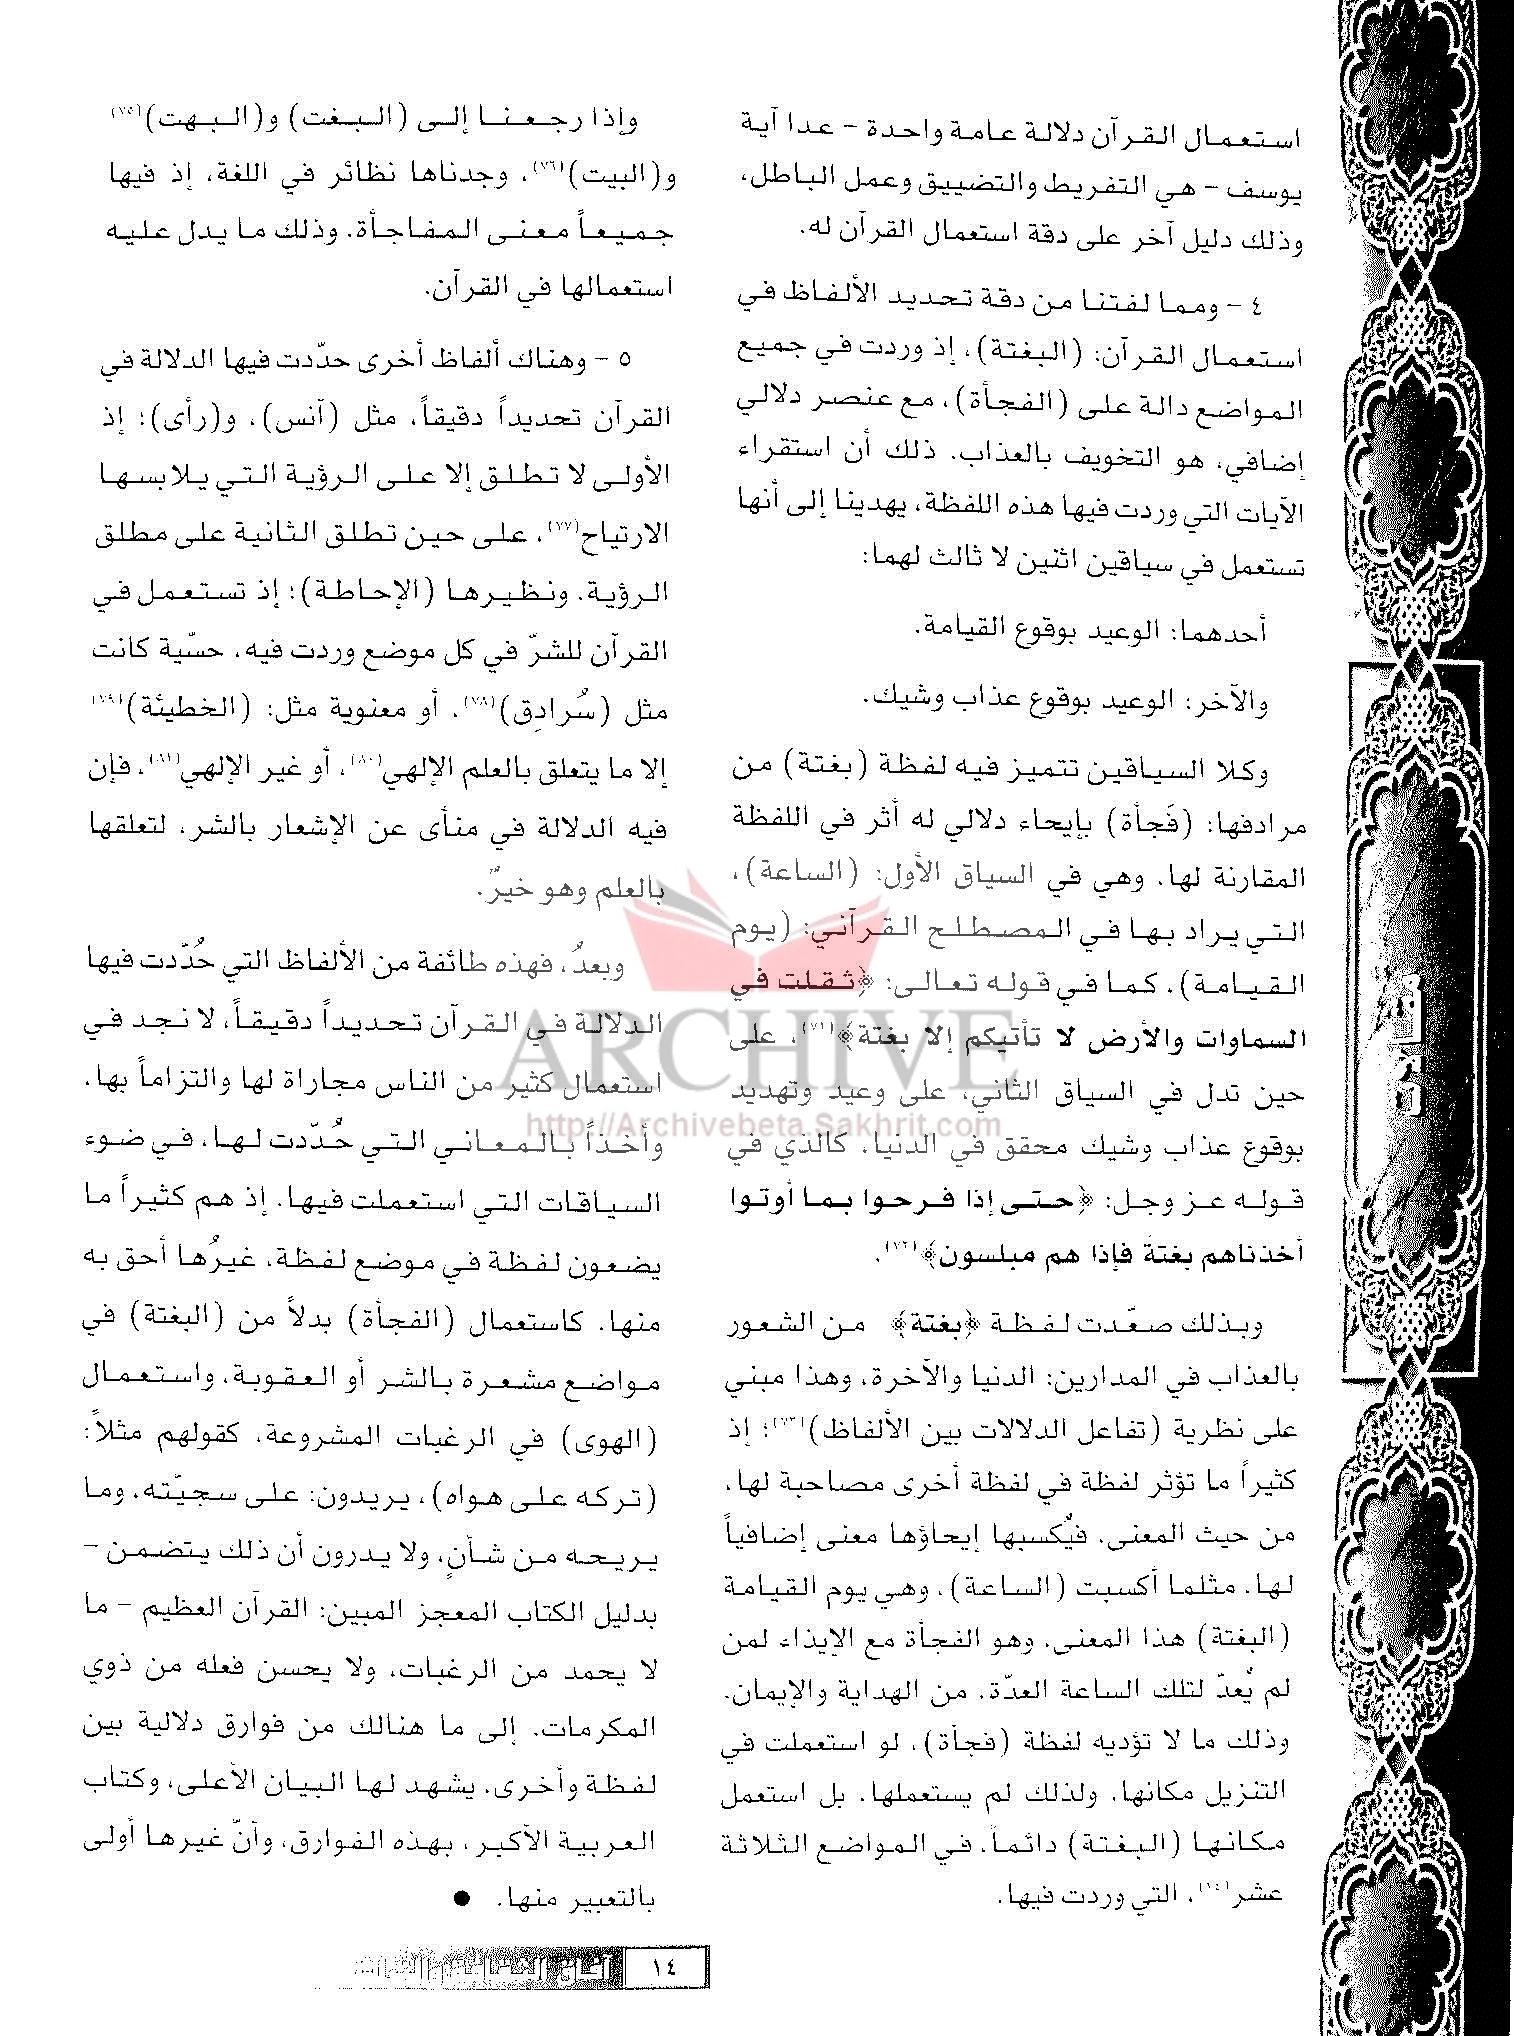 استعمال القرآن دلالة عامة واحدة - عدا آية
يوسف - هي التفريط والتضييق وعمل الباطل،
وذلك دليل آخر على دقة استعمال القرآن له.
٤ - ومما لفتنا من دقة تحديد الألفاظ في
استعمال القرآن: (البغتة)، إذ وردت في جميع
المواضع دالة على (الفجأة)، مع عنصر دلالي
إضافي، هو التخويف بالعذاب. ذلك أن استقراء
الآيات التي وردت فيها هذه اللفظة، يهدينا إلى أنها
تستعمل في سياقين اثنين لا ثالث لهما:
أحدهما: الوعيد بوقوع القيامة.
والآخر: الوعيد بوقوع عذاب وشيك.
وكلا السياقين تتميز فيه لفظة (بغتة) من
مرادفها: (فَجأة) بإيحاء دلالي له أثر في اللفظة
المقارنة لها. وهي في السياق الأول: (الساعة)،
التي يراد بها في المصطلح القرآني: (يوم
القيامة). كما في قوله تعالى: ﴿ثقلت في
السماوات والأرض لا تأتيكم إلا بغتة﴾(٧١)، على
حين تدل في السياق الثاني، على وعيد وتهديد
بوقوع عذاب وشيك محقق في الدنيا، كالذي في
قوله عز وجل: ﴿حتى إذا فرحوا بما أوتوا
أخذناهم بغتة فإذا هم مبلسون﴾(٧٢).
وبذلك صعّدت لفظة ﴿بغتة﴾ من الشعور
بالعذاب في المدارين: الدنيا والآخرة، وهذا مبني
على نظرية (تفاعل الدلالات بين الألفاظ)(٧٣)؛ إذ
كثيراً ما تؤثر لفظة في لفظة أخرى مصاحبة لها،
من حيث المعنى. فيُكسبها إيحاؤها معنى إضافياً
لها. مثلما أكسبت (الساعة)، وهي يوم القيامة
(البغتة) هذا المعنى، وهو الفجأة مع الإيذاء لمن
لم يُعدّ لتلك الساعة العدّة، من الهداية والإيمان.
وذلك ما لا تؤديه لفظة (فجأة)، لو استعملت في
التنزيل مكانها. ولذلك لم يستعملها. بل استعمل
مكانها (البغتة) دائماً، في المواضع الثلاثة
عشر(٧٤)، التي وردت فيها.
وإذا رجعنا إلى (البغت) و(البهت)(٧٥)
و(البيت)(٧٦)، وجدناها نظائر في اللغة، إذ فيها
جميعاً معنى المفاجأة. وذلك ما يدل عليه
استعمالها في القرآن.
٥ - وهناك ألفاظ أخرى حدّدت فيها الدلالة في
القرآن تحديداً دقيقاً، مثل (آنس)، و(رأى)؛ إذ
الأولى لا تطلق إلا على الرؤية التي يلابسها
الارتياح(٧٧)، على حين تطلق الثانية على مطلق
الرؤية. ونظيرها (الإحاطة)؛ إذ تستعمل في
القرآن للشرّ في كل موضع وردت فيه، حسّية كانت
مثل (سُرادِق)(٧٨)، أو معنوية مثل: (الخطيئة)(٧٩)
إلا ما يتعلق بالعلم الإلهي(٨٠)، أو غير الإلهي(٨١)، فإن
فيه الدلالة في منأى عن الإشعار بالشر، لتعلقها
بالعلم وهو خيرٌ.
وبعدُ، فهذه طائفة من الألفاظ التي حُدّدت فيها
الدلالة في القرآن تحديداً دقيقاً، لا نجد في
استعمال كثير من الناس مجاراة لها والتزاماً بها،
وأخذاً بالمعاني التي حُدّدت لها، في ضوء
السياقات التي استعملت فيها. إذ هم كثيراً ما
يضعون لفظة في موضع لفظة، غيرُها أحق به
منها. كاستعمال (الفجأة) بدلاً من (البغتة) في
مواضع مشعرة بالشر أو العقوبة، واستعمال
(الهوى) في الرغبات المشروعة، كقولهم مثلاً:
(تركه على هواه)، يريدون: على سجيّته، وما
يريحه من شأنٍ، ولا يدرون أن ذلك يتضمن -
بدليل الكتاب المعجز المبين: القرآن العظيم - ما
لا يحمد من الرغبات، ولا يحسن فعله من ذوي
المكرمات. إلى ما هنالك من فوارق دلالية بين
لفظة وأخرى. يشهد لها البيان الأعلى، وكتاب
العربية الأكبر، بهذه الفوارق، وأنّ غيرها أولى
بالتعبير منها. ●
مقالات
ARCHIVE
http://Archivebeta.Sakhrit.com
١٤